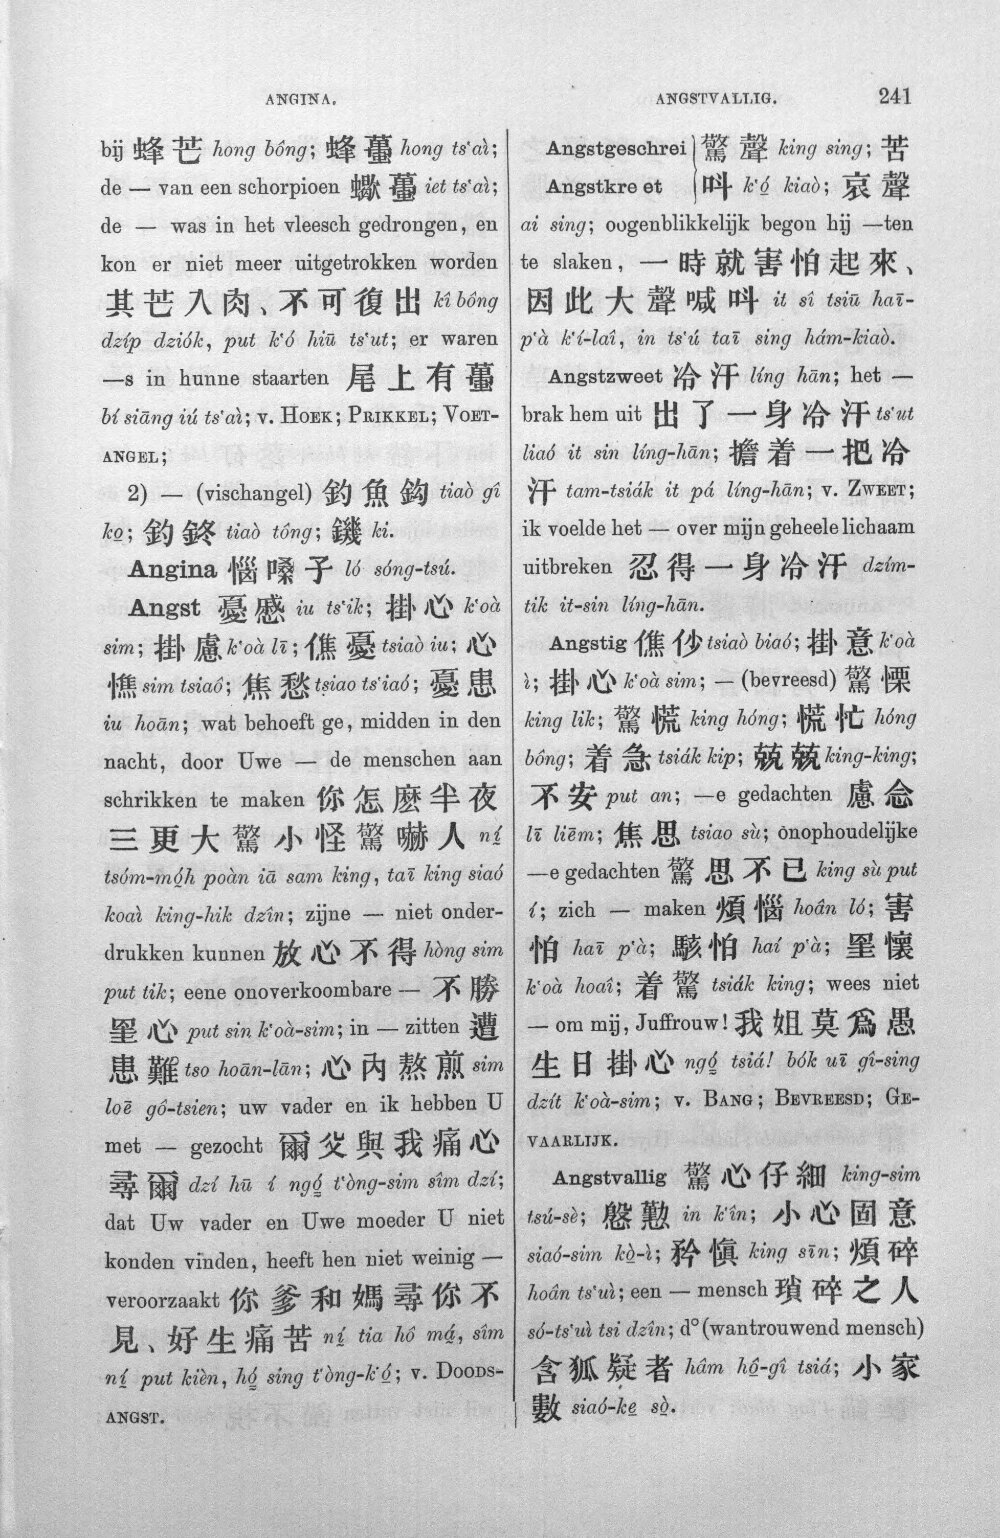 ANGINA.
bij 蜂芒 hong bông; 蜂蠆 hong ts‘aì;
de — van een schorpioen 蠍蠆 iet ts‘aì;
de — was in het vleesch gedrongen, en
kon er niet meer uitgetrokken worden
其芒入肉、不可復出 kî bông
dzíp dziók, put k‘ó hiū ts‘ut; er waren
—s in hunne staarten 尾上有蠆
bí siāng iú ts‘aì; v. HOEK; PRIKKEL; VOET-
ANGEL;
2) — (vischangel) 釣魚鈎 tiaò gî
ko̱; 釣鉖 tiaò tông; 鐖 ki.
Angina 惱嗓子 ló sóng-tsú.
Angst 憂慼 iu ts‘ik; 掛心 k‘oà
sim; 掛慮 k‘oà lī; 僬憂 tsiaò iu; 心
憔 sim tsiaô; 焦愁 tsiao ts‘iaó; 憂患
iu hoān; wat behoeft ge, midden in den
nacht, door Uwe — de menschen aan
schrikken te maken 你怎麽半夜
三更大驚小怪驚嚇人 ní̱
tsóm-mó̱h poàn iā sam king, taī king siaó
koaì king-hik dzîn; zijne — niet onder-
drukken kunnen 放心不得 hòng sim
put tik; eene onoverkoombare — 不勝
罣心 put sin k‘oà-sim; in — zitten 遭
患難 tso hoān-lān; 心內熬煎 sim
loē gô-tsien; uw vader en ik hebben U
met — gezocht 爾父與我痛心
尋爾 dzí hū í ngó̱ t‘òng-sim sîm dzí;
dat Uw vader en Uwe moeder U niet
konden vinden, heeft hen niet weinig —
veroorzaakt 你爹和媽尋你不
見、好生痛苦 ní̱ tia hô má̱, sîm
ní̱ put kièn, hó̱ sing t‘òng-k‘ó̱; v. DOODS-
ANGST.
ANGSTVALLIG. 241
Angstgeschrei 驚聲 king sing; 苦
Angstkreet 叫 k‘ó̱ kiaò; 哀聲
ai sing; oogenblikkelijk begon hij —ten
te slaken, 一時就害怕起來、
因此大聲喊叫 it sî tsiū haī-
p‘à k‘í-laî, in ts‘ú taī sing hám-kiaò.
Angstzweet 冷汗 líng hān; het —
brak hem uit 出了一身冷汗 ts‘ut
liaó it sin líng-hān; 擔着一把冷
汗 tam-tsiák it pá líng-hān; v. ZWEET;
ik voelde het — over mijn geheele lichaam
uitbreken 忍得一身冷汗 dzím-
tik it-sin líng-hān.
Angstig 僬仯 tsiaò biaó; 掛意 k‘oà
ì; 掛心 k‘oà sim; — (bevreesd) 驚慄
king lik; 驚慌 king hóng; 慌忙 hóng
bông; 着急 tsiák kip; 兢兢 king-king;
不安 put an; —e gedachten 慮念
lī liēm; 焦思 tsiao sù; onophoudelijke
—e gedachten 驚思不已 king sù put
í; zich — maken 煩惱 hoân ló; 害
怕 haī p‘à; 駭怕 haí p‘à; 罣懷
k‘oà hoaî; 着驚 tsiák king; wees niet
— om mij, Juffrouw! 我姐莫爲愚
生日掛心 ngó̱ tsiá! bók uī gî-sing
dzít k‘oà-sim; v. BANG; BEVREESD; GE-
VAARLIJK.
Angstvallig 驚心仔細 king-sim
tsú-sè; 慇懃 in k‘în; 小心固意
siaó-sim kò̱-ì; 矜愼 king sīn; 煩碎
hoân ts‘uì; een — mensch 瑣碎之人
só-ts‘uì tsi dzîn; d° (wantrouwend mensch)
含狐疑者 hâm hô̱-gî tsiá; 小家
數 siaó-ke̱ sò̱.